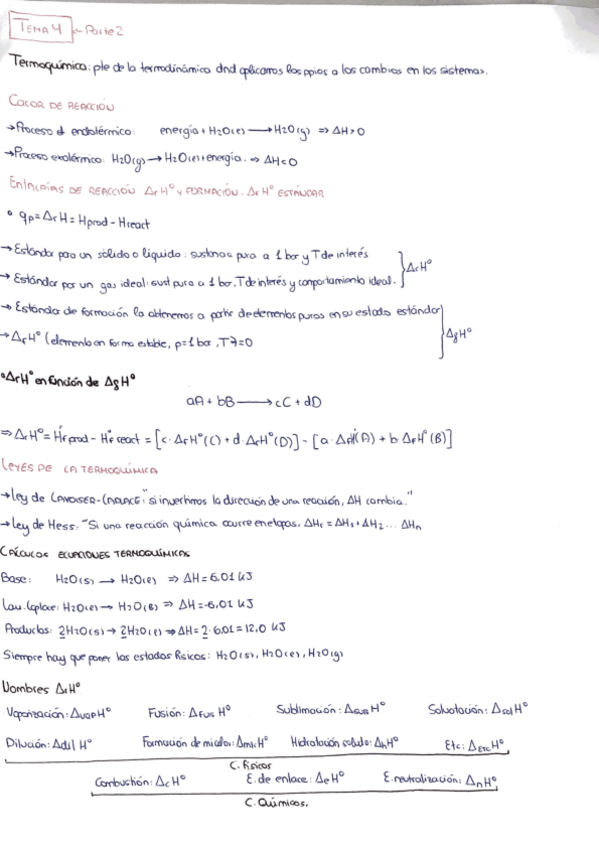 TEMA 4 - Parte 2
Termoquímica: pte de la termodinámica dnd aplicamos los ppios a los cambios en los sistemas.
CALOR DE REACCIÓN
→Proceso endotérmico: energía + H2O(l) → H2O(g) ⇒ ΔH>0
→Proceso exotérmico: H2O(g) → H2O(l) + energía. ⇒ ΔH<0
ENTALPÍAS DE REACCIÓN ΔrH° Y FORMACIÓN. ΔfH° ESTÁNDAR
• qp = ΔrH = Hprod - Hreact
→ Estándar para un sólido o líquido: sustancia pura a 1 bar y T de interés
→ Estándar por un gas ideal: sust pura a 1 bar, T de interés y comportamiento ideal. } ΔrH°
→ Estándar de formación la obtenemos a partir de elementos puros en su estado estándar
→ ΔfH° (elemento en forma estable, p=1 bar, T)=0 } ΔfH°
• ΔrH° en función de ΔfH°
aA + bB → cC + dD
⇒ ΔrH° = H°f prod - H°f react = [c·ΔfH°(C) + d·ΔfH°(D)] - [a·ΔfH°(A) + b·ΔfH°(B)]
LEYES DE LA TERMOQUÍMICA
→ Ley de LAVOISER-LAPLACE: "si invertimos la dirección de una reacción, ΔH cambia."
→ Ley de Hess: "Si una reacción química ocurre en etapas, ΔHt = ΔH1 + ΔH2 ... ΔHn
CÁLCULOS ECUACIONES TERMOQUÍMICAS
Base: H2O(s) → H2O(l) ⇒ ΔH = 6.01 kJ
Lav. Laplace: H2O(l) → H2O(s) ⇒ ΔH = -6.01 kJ
Productos: 2H2O(s) → 2H2O(l) ⇒ ΔH = 2·6.01 = 12.0 kJ
Siempre hay que poner los estados físicos: H2O(s), H2O(l), H2O(g)
Nombres ΔrH°
Vaporización: ΔVAPH° Fusión: ΔFUSH° Sublimación: ΔSUBH° Solvatación: ΔsolH°
Dilución: ΔdilH° Formación de micelas: ΔmicH° Hidratación soluto: ΔhH° Etc: ΔEtcH°
C. Físicos
Combustión: ΔcH° E. de enlace: ΔeH° E. neutralización: ΔnH°
C. Químicos.